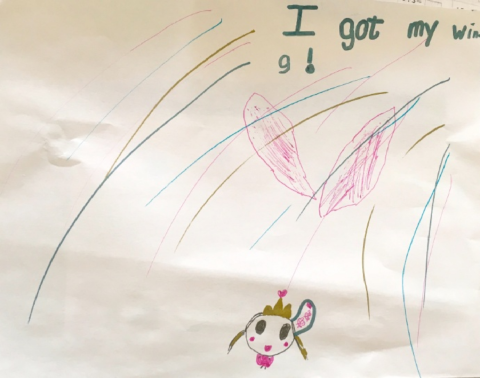 I got my win
g!